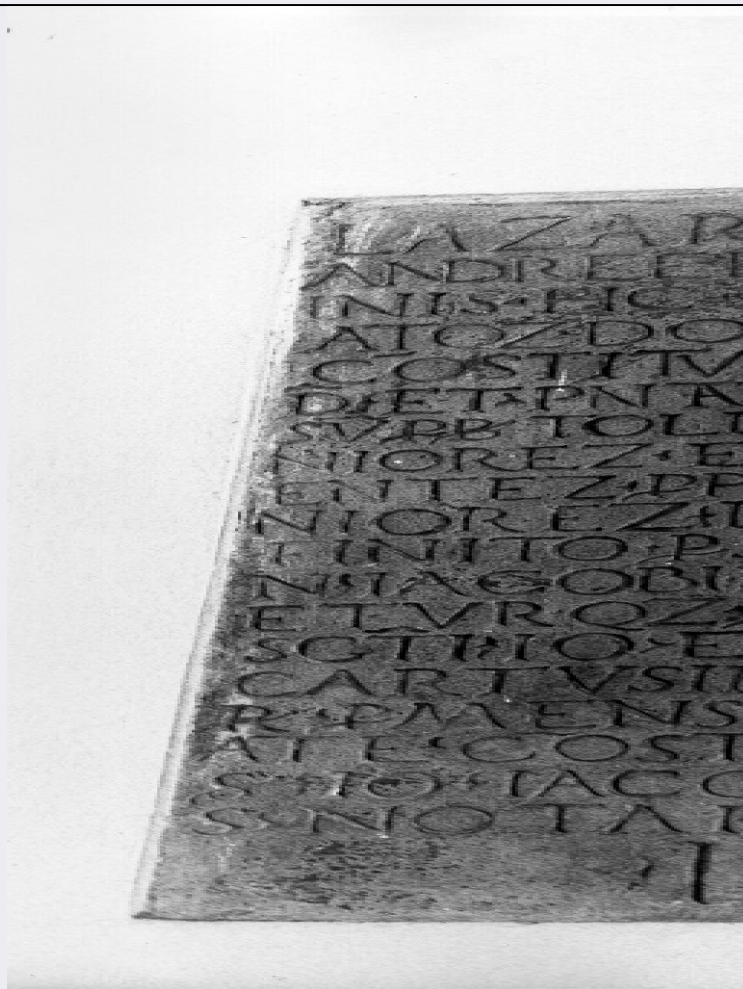 LAZAR
ANDREE
INIS·PIC
ATOZ·DO
COSTITV
D·ET·PNA
SVPP TOLL
NIOREZ·E
ENTEZ·PP
NIOREZ
FINITO·P
N·IACOBI
ETVROZ
SGTI·IO·E
CARTVSI
R·PMENS
ATE·COST
S·IO·IACO
S·NOTAR